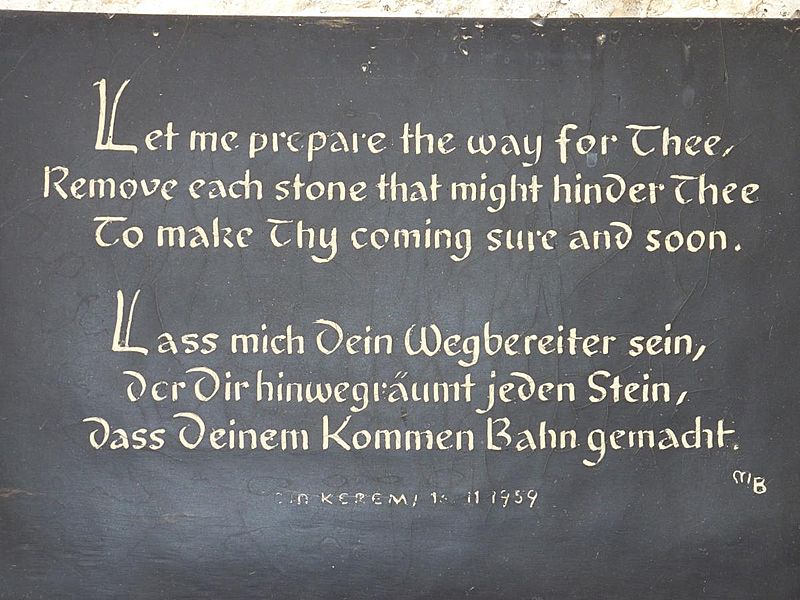 Let me prepare the way for Thee,
Remove each stone that might hinder Thee
To make Thy coming sure and soon.
Lass mich Dein Wegbereiter sein,
der Dir hinwegräumt jeden Stein,
dass Deinem Kommen Bahn gemacht.
MB
EIN KEREM, 11 1959